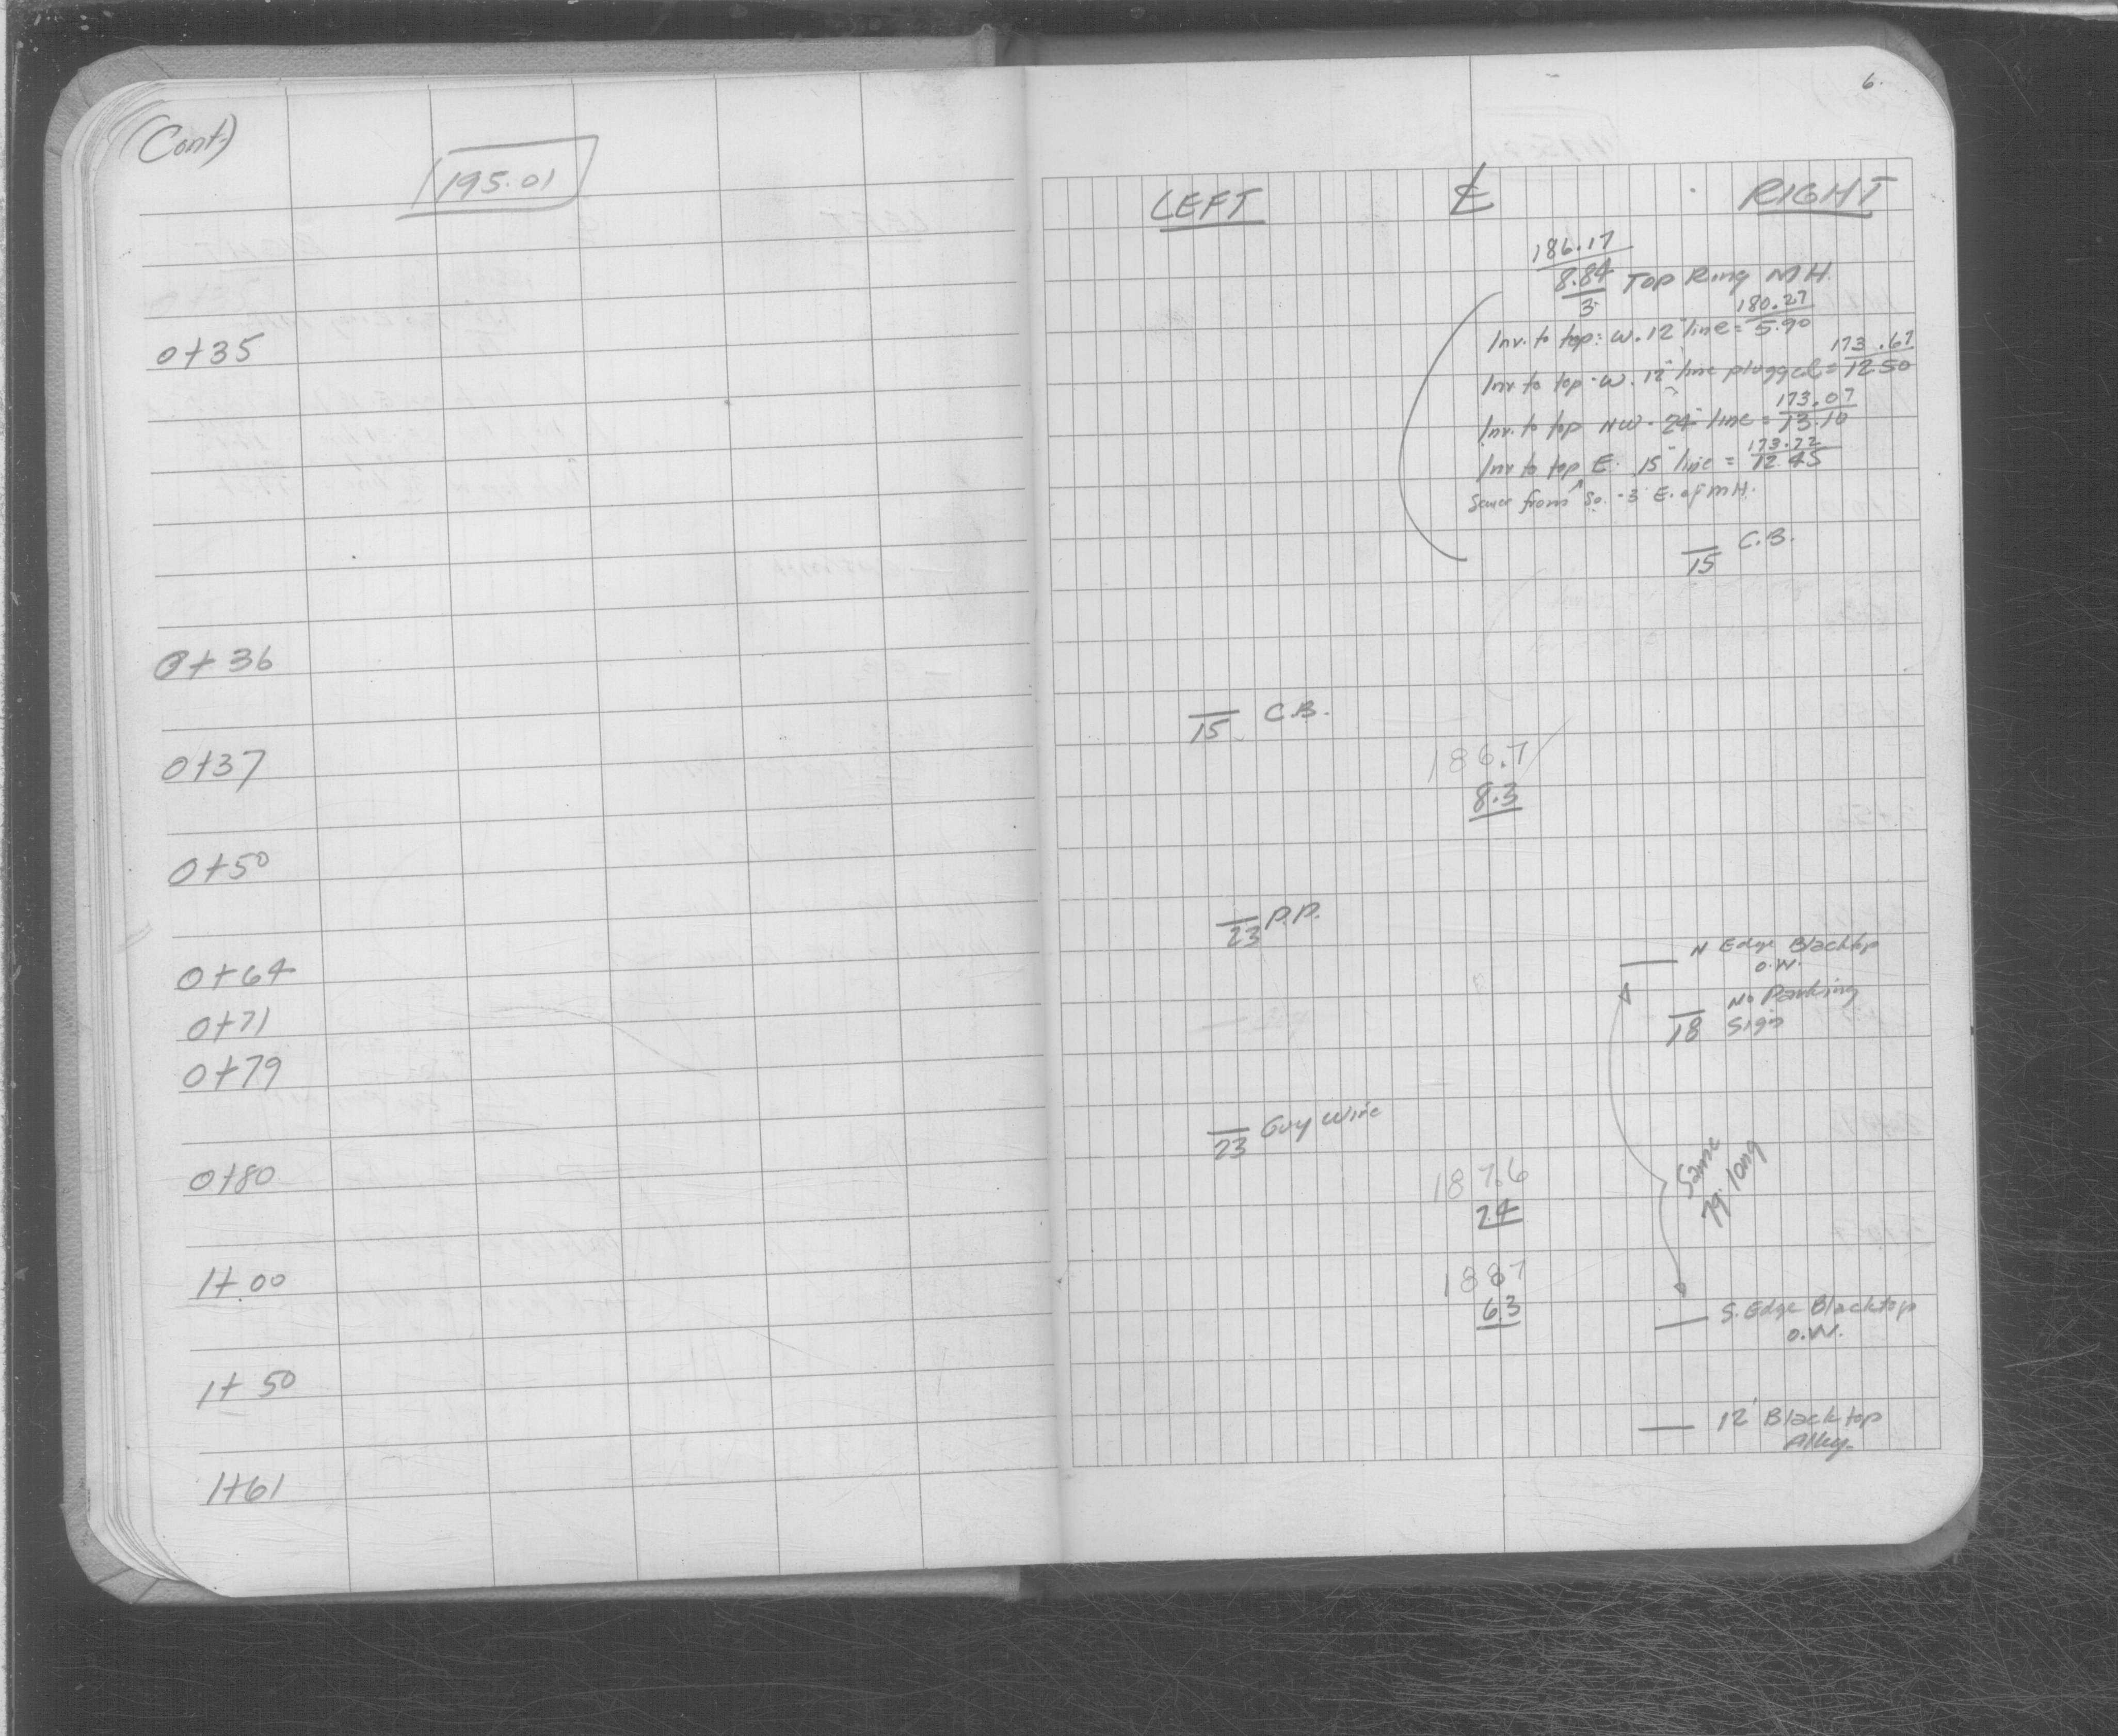 (Cont.)
195.01
0+35
0+36
0+37
0+50
0+64
0+71
0+79
0+80
1+00
1+50
1+61
6.
LEFT ℄ RIGHT
186.17
8.84 Top Ring M.H.
3
180.27
Inv. to top: W. 12" line = 5.90
173.67
Inv. to top - W. 12" line plugged = 12.50
173.07
Inv. to top NW - 24" line = 13.10
173.72
Inv to top E. 15" line = 12.45
from So. - 3' E. of M.H.
C.B.
15
C.B.
15
186.7
8.3
P.P.
23
N Edge Blacktop
O.W.
No Parking
18 Sign
Guy Wire
23
Same
79' long
187.6
7.4
188.7
6.3
S. Edge Blacktop
O.W.
12' Blacktop
Alley